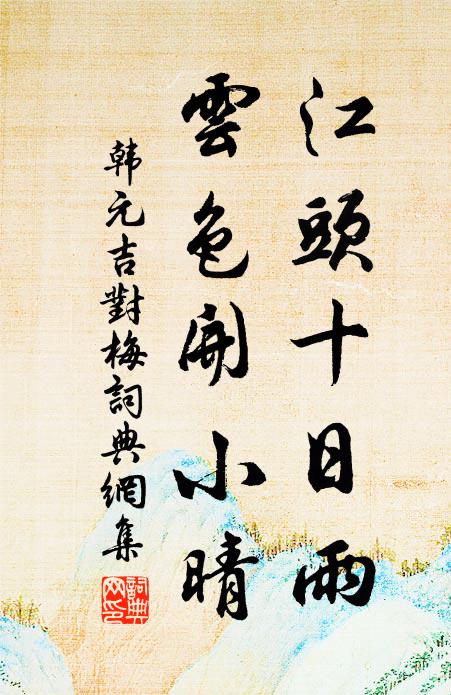 江頭十日雨
雲色開小晴
韩元吉對梅詞典網集
詞典网印